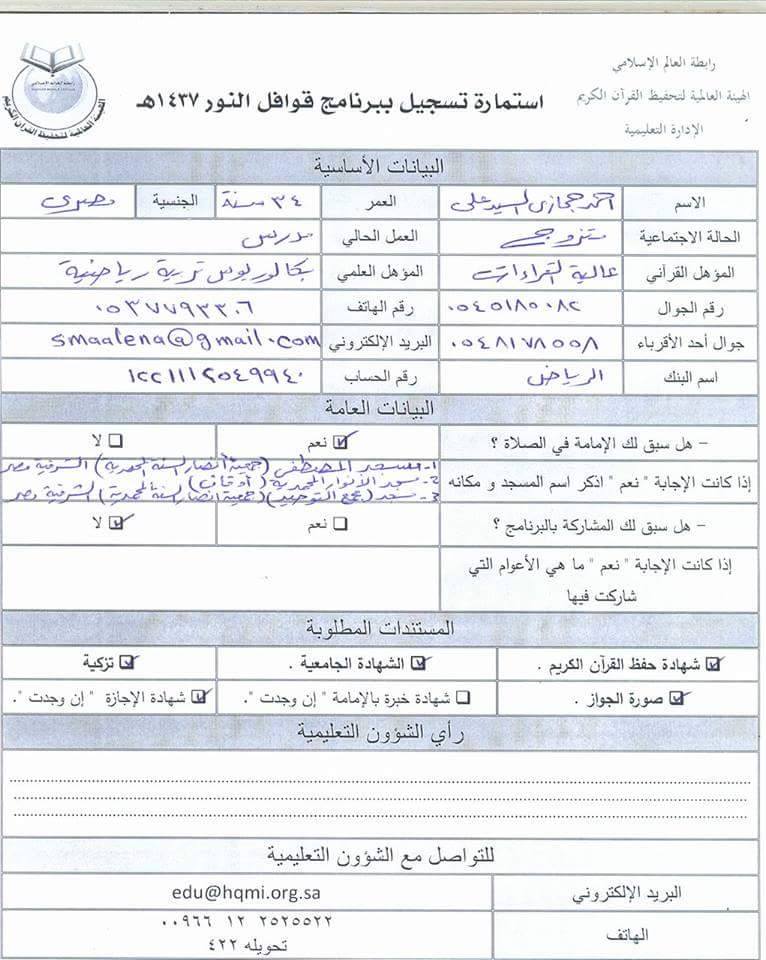 رابطة العالم الإسلامي
الهيئة العالمية لتحفيظ القرآن الكريم
الإدارة التعليمية
رابطة العالم الإسلامي
الهيئة العالمية لتحفيظ القرآن الكريم
استمارة تسجيل ببرنامج قوافل النور ١٤٣٧هـ
البيانات الأساسية
الاسم احمد حجازى السيد على العمر ٣٤ سنة الجنسية مصرى
الحالة الاجتماعية متزوج العمل الحالي مدرس
المؤهل القرآني عالية القراءات المؤهل العلمي بكالوريوس تربية رياضية
رقم الجوال ٠٥٤٥١٨٥٠٨٢ رقم الهاتف ٠٥٣٧٧٩٣٣٠٦
جوال أحد الأقرباء ٠٥٤٨١٧٨٥٥٨ البريد الإلكتروني smaalena@gmail.com
اسم البنك الرياض رقم الحساب
البيانات العامة
– هل سبق لك الإمامة في الصلاة ؟ ☑ نعم ☐ لا
إذا كانت الإجابة " نعم " اذكر اسم المسجد و مكانه
1- مسجد المصطفى (جمعية أنصار السنة المحمدية) الشرقية مصر
2- مسجد الأنوار المحمدية (أوقاف)
3- مسجد (مجمع التوحيد) (جمعية انصار السنة المحمدية) الشرقية مصر
– هل سبق لك المشاركة بالبرنامج ؟ ☐ نعم ☑ لا
إذا كانت الإجابة " نعم " ما هي الأعوام التي
شاركت فيها
المستندات المطلوبة
☑ شهادة حفظ القرآن الكريم . ☑ الشهادة الجامعية . ☑ تزكية
☑ صورة الجواز . ☐ شهادة خبرة بالإمامة " إن وجدت ". ☑ شهادة الإجازة " إن وجدت ".
رأي الشؤون التعليمية
للتواصل مع الشؤون التعليمية
البريد الإلكتروني edu@hqmi.org.sa
الهاتف ٠٠٩٦٦ ١٢ ٢٥٢٥٥٢٢
تحويله ٤٢٢